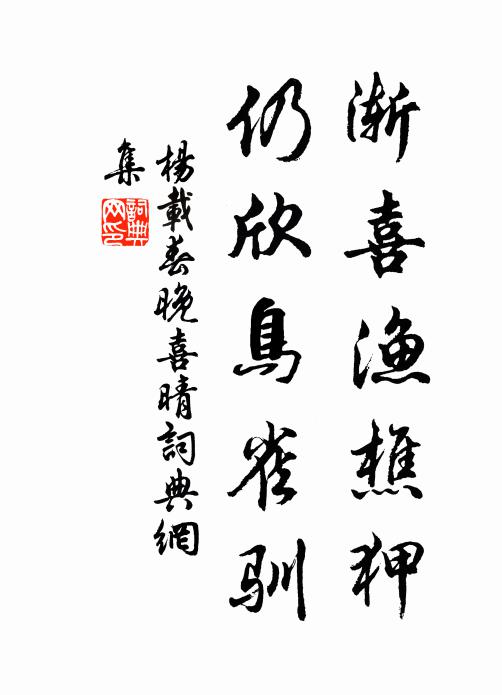 漸喜漁樵狎
仍欣鳥雀馴
楊載春晚喜晴詞典網
集
詞典
网印